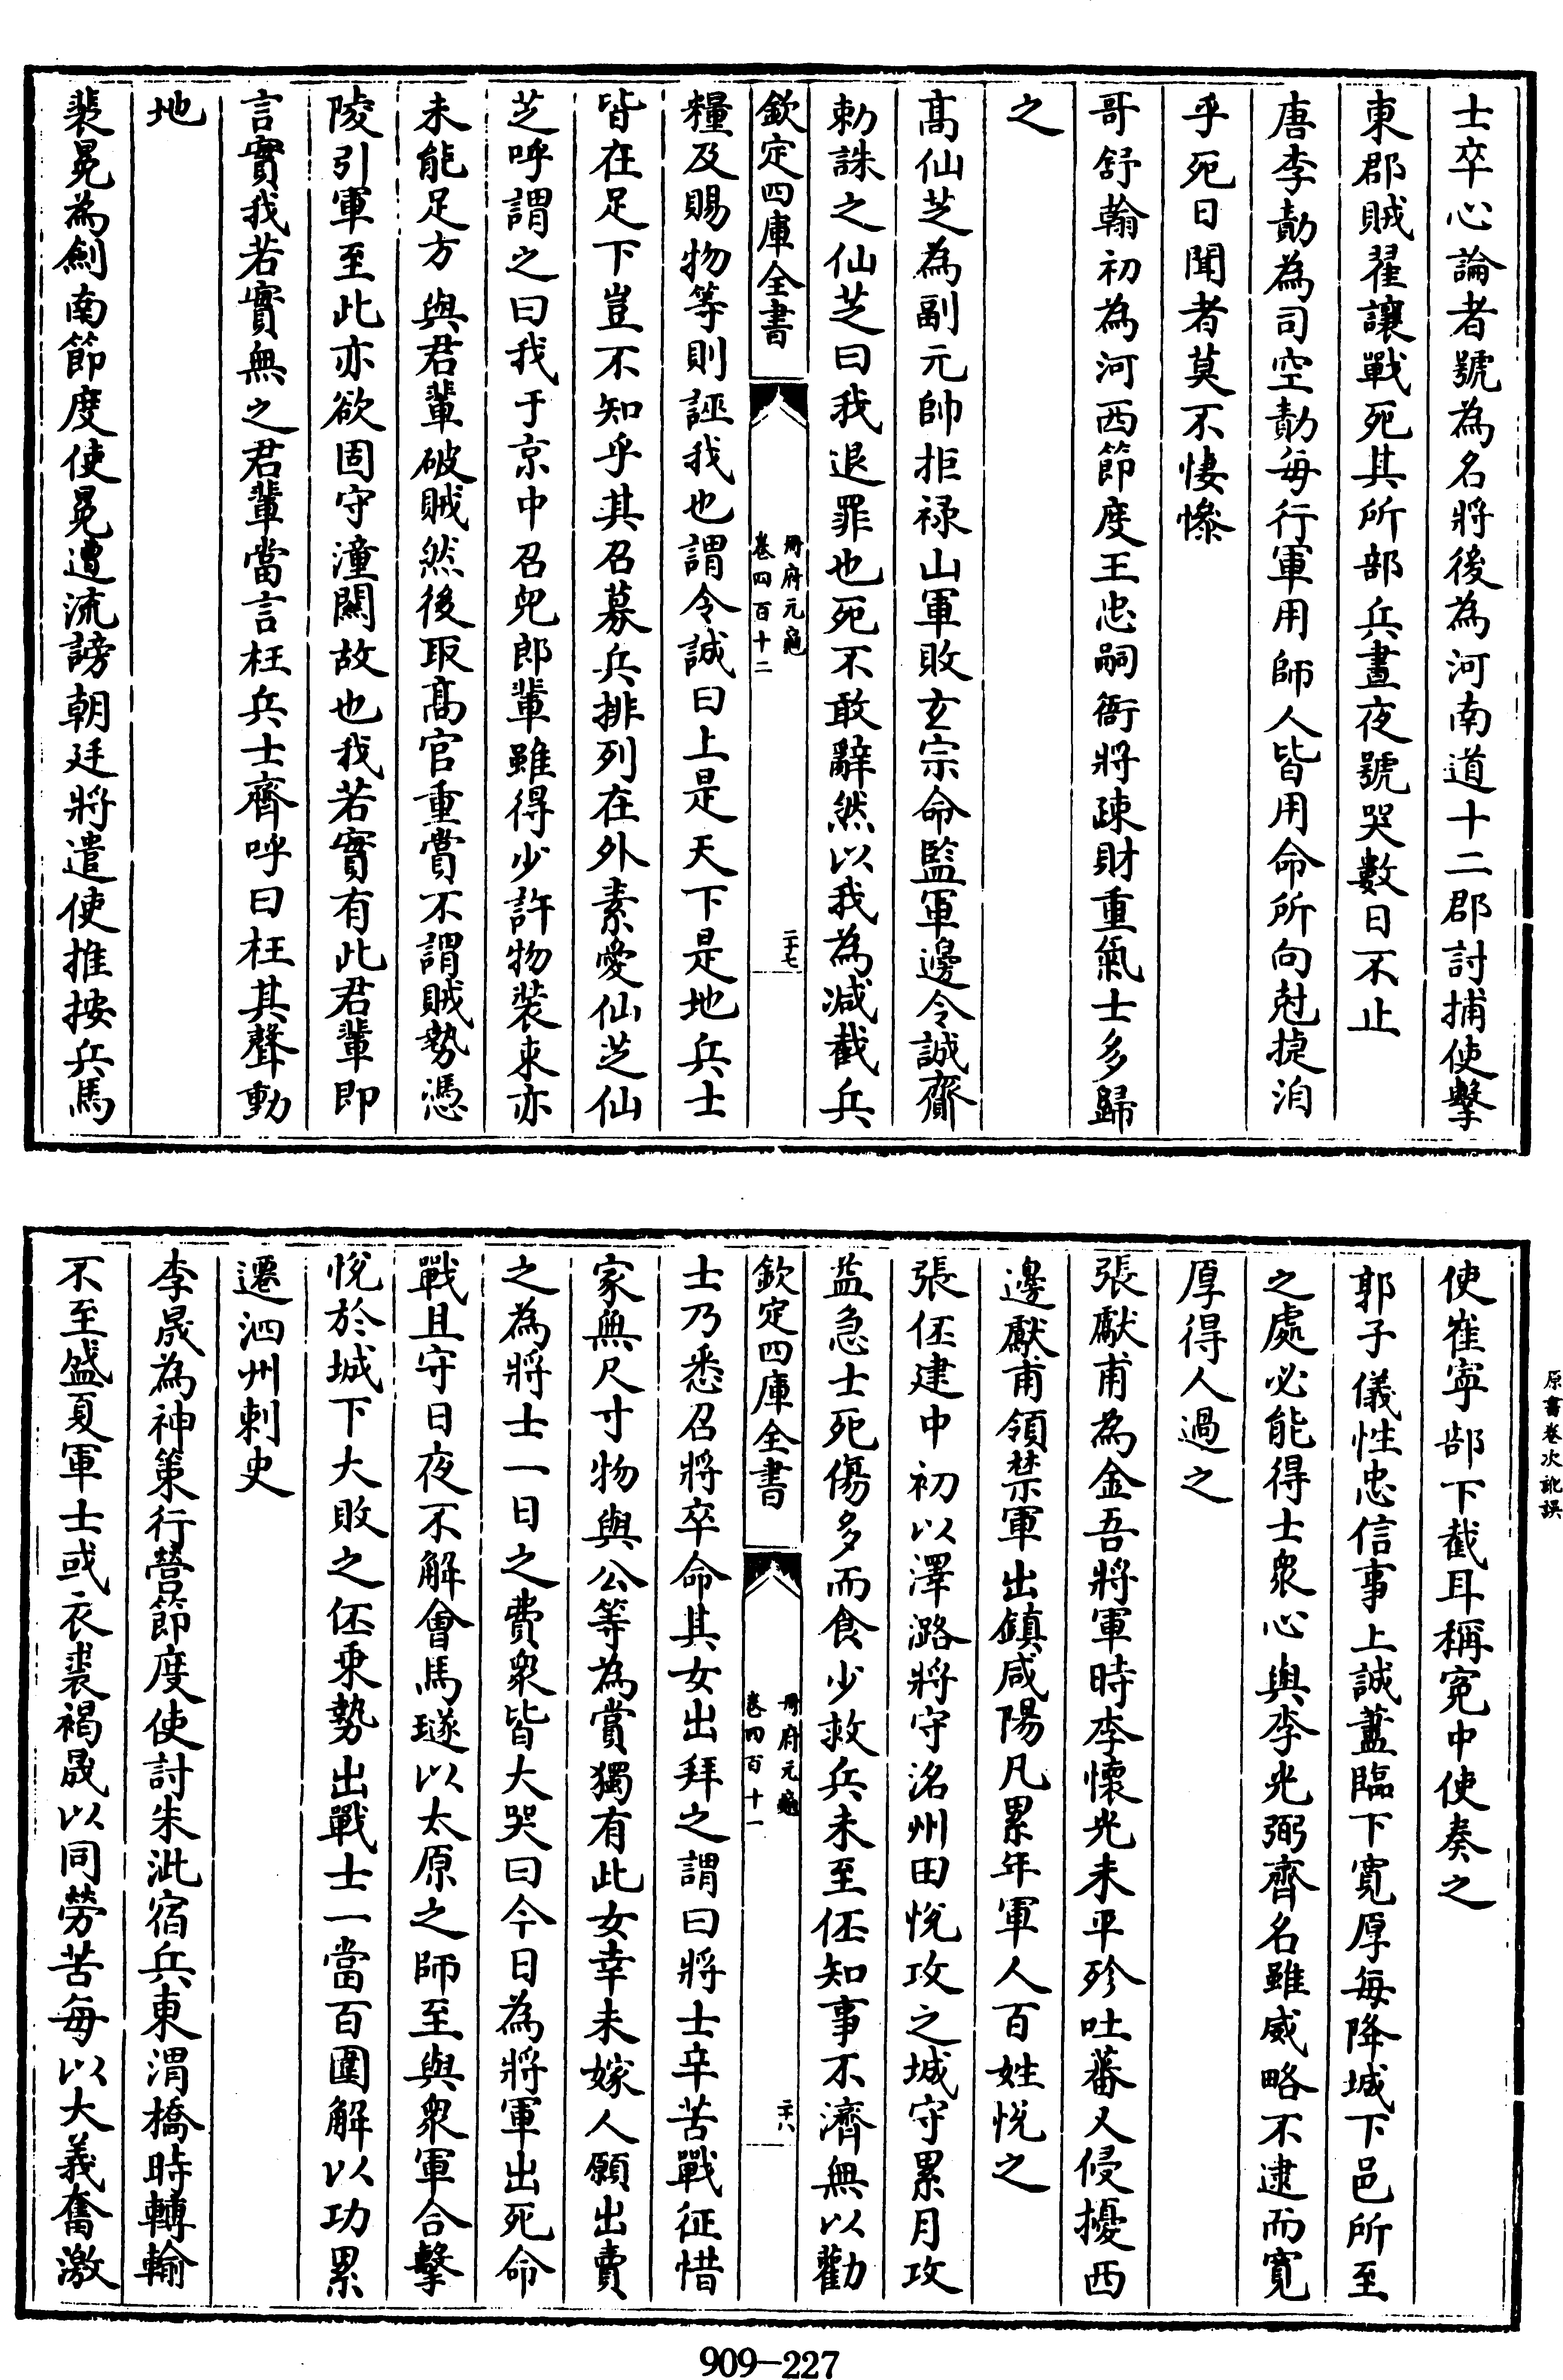 士卒心論者號為名將後為河南道十二郡討捕使擊
東郡賊翟讓戰死其所部兵晝夜號哭數日不止
唐李勣為司空勣每行軍用師人皆用命所向尅捷洎
乎死日聞者莫不悽慘
哥舒翰初為河西節度王忠嗣衙將疎財重氣士多歸
之
髙仙芝為副元帥拒禄山軍敗玄宗命監軍邊令誠齎
勅誅之仙芝曰我退罪也死不敢辭然以我為減截兵
欽定四庫全書
冊府元龜
卷四百十二
二十七
糧及賜物等則誣我也謂令誠曰上是天下是地兵士
皆在足下豈不知乎其召募兵排列在外素愛仙芝仙
芝呼謂之曰我于京中召兒郎輩雖得少許物裝束亦
未能足方與君輩破賊然後取髙官重賞不謂賊勢憑
陵引軍至此亦欲固守潼關故也我若實有此君輩即
言實我若實無之君輩當言枉兵士齊呼曰枉其聲動
地
裴冕為劍南節度使冕遭流謗朝廷將遣使推按兵馬
使崔寧部下截耳稱寃中使奏之
郭子儀性忠信事上誠藎臨下寛厚每降城下邑所至
之處必能得士衆心與李光弼齊名雖威略不逮而寛
厚得人過之
張獻甫為金吾將軍時李懷光未平殄吐蕃又侵擾西
邊獻甫領禁軍出鎮咸陽凡累年軍人百姓悅之
張伾建中初以澤潞將守洺州田悅攻之城守累月攻
益急士死傷多而食少救兵未至伾知事不濟無以勸
欽定四庫全書
冊府元龜
卷四百十一
二十八
士乃悉召將卒命其女出拜之謂曰將士辛苦戰征惜
家無尺寸物與公等為賞獨有此女幸未嫁人願出賣
之為將士一日之費衆皆大哭曰今日為將軍出死命
戰且守日夜不解會馬璲以太原之師至與衆軍合擊
悅於城下大敗之伾乘勢出戰士一當百圍解以功累
遷泗州刺史
李晟為神策行營節度使討朱泚宿兵東渭橋時轉輸
不至盛夏軍士或衣裘褐晟以同勞苦每以大義奮激
原書卷次訛誤
909-227